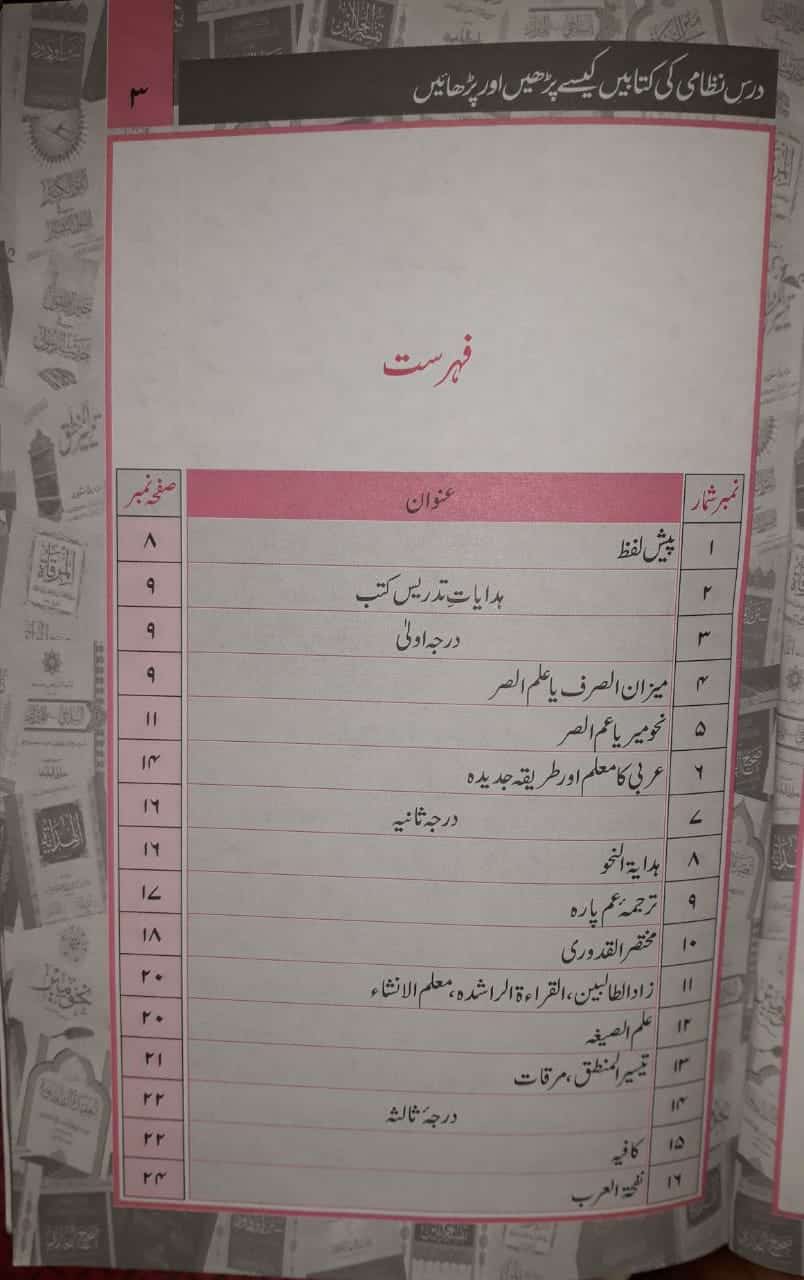 درسِ نظامی کی کتابیں کیسے پڑھیں اور پڑھائیں ۳
فہرست
نمبر شمار عنوان صفحہ نمبر
۱ پیش لفظ ۸
۲ ہدایاتِ تدریس کتب ۹
۳ درجہ اولیٰ ۹
۴ میزان الصرف یا علم الصر ۹
۵ نحو میر یا عم الصر ۱۱
۶ عربی کا معلم اور طریقہ جدیدہ ۱۴
۷ درجہ ثانیہ ۱۶
۸ ہدایۃ النحو ۱۶
۹ ترجمۂ عم پارہ ۱۷
۱۰ مختصر القدوری ۱۸
۱۱ زاد الطالبین، القراءۃ الراشدہ، معلم الانشاء ۲۰
۱۲ علم الصیغہ ۲۰
۱۳ تیسیر المنطق، مرقات ۲۱
۱۴ درجۂ ثالثہ ۲۲
۱۵ کافیہ ۲۲
۱۶ نفحۃ العرب ۲۴